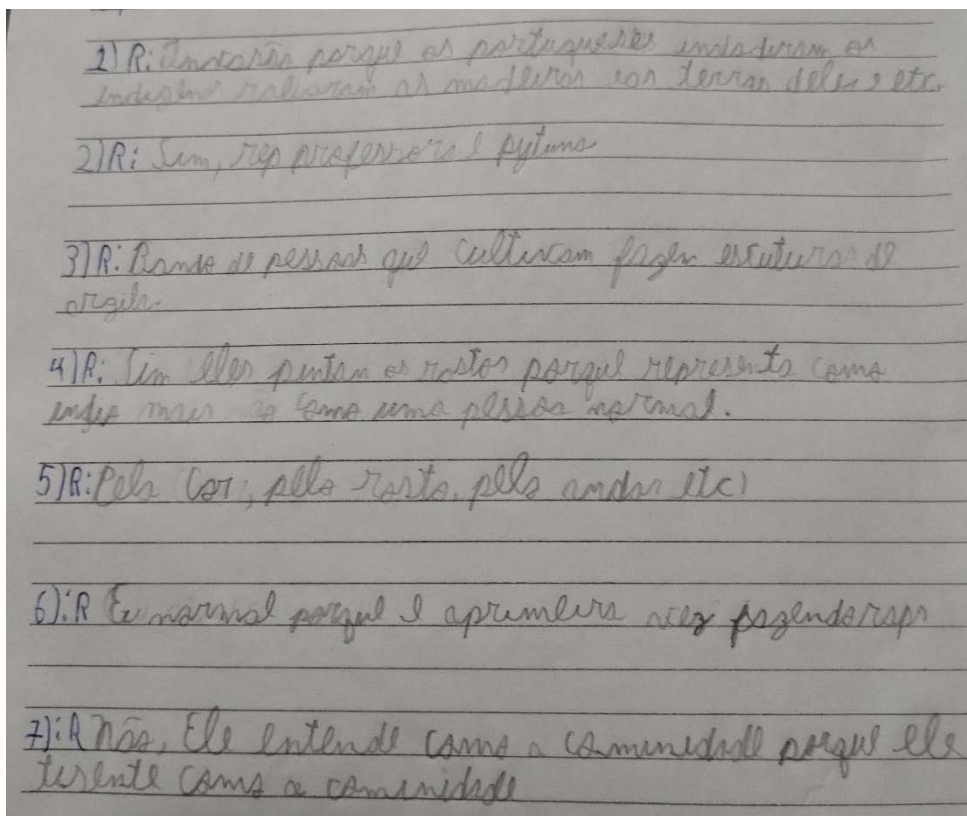 1) R: Invasão porque os portugueses invadiram os
indígenas roubaram as madeiras eas terras deles e etc.
2) R: Sim, rep professora e
3) R: Bando de pessoas que cultivam fazen escuturas de
argila.
4) R: Sim eles pintam os rostos porque representa como
indio mais como uma pessoa normal.
5) R: Pela cor, pelo rosto, pelo andar etc)
6): R E normal porque e aprimeira vez fazendo
7): R Não, Ele entende como a comunidade porque ele
como a comunidade